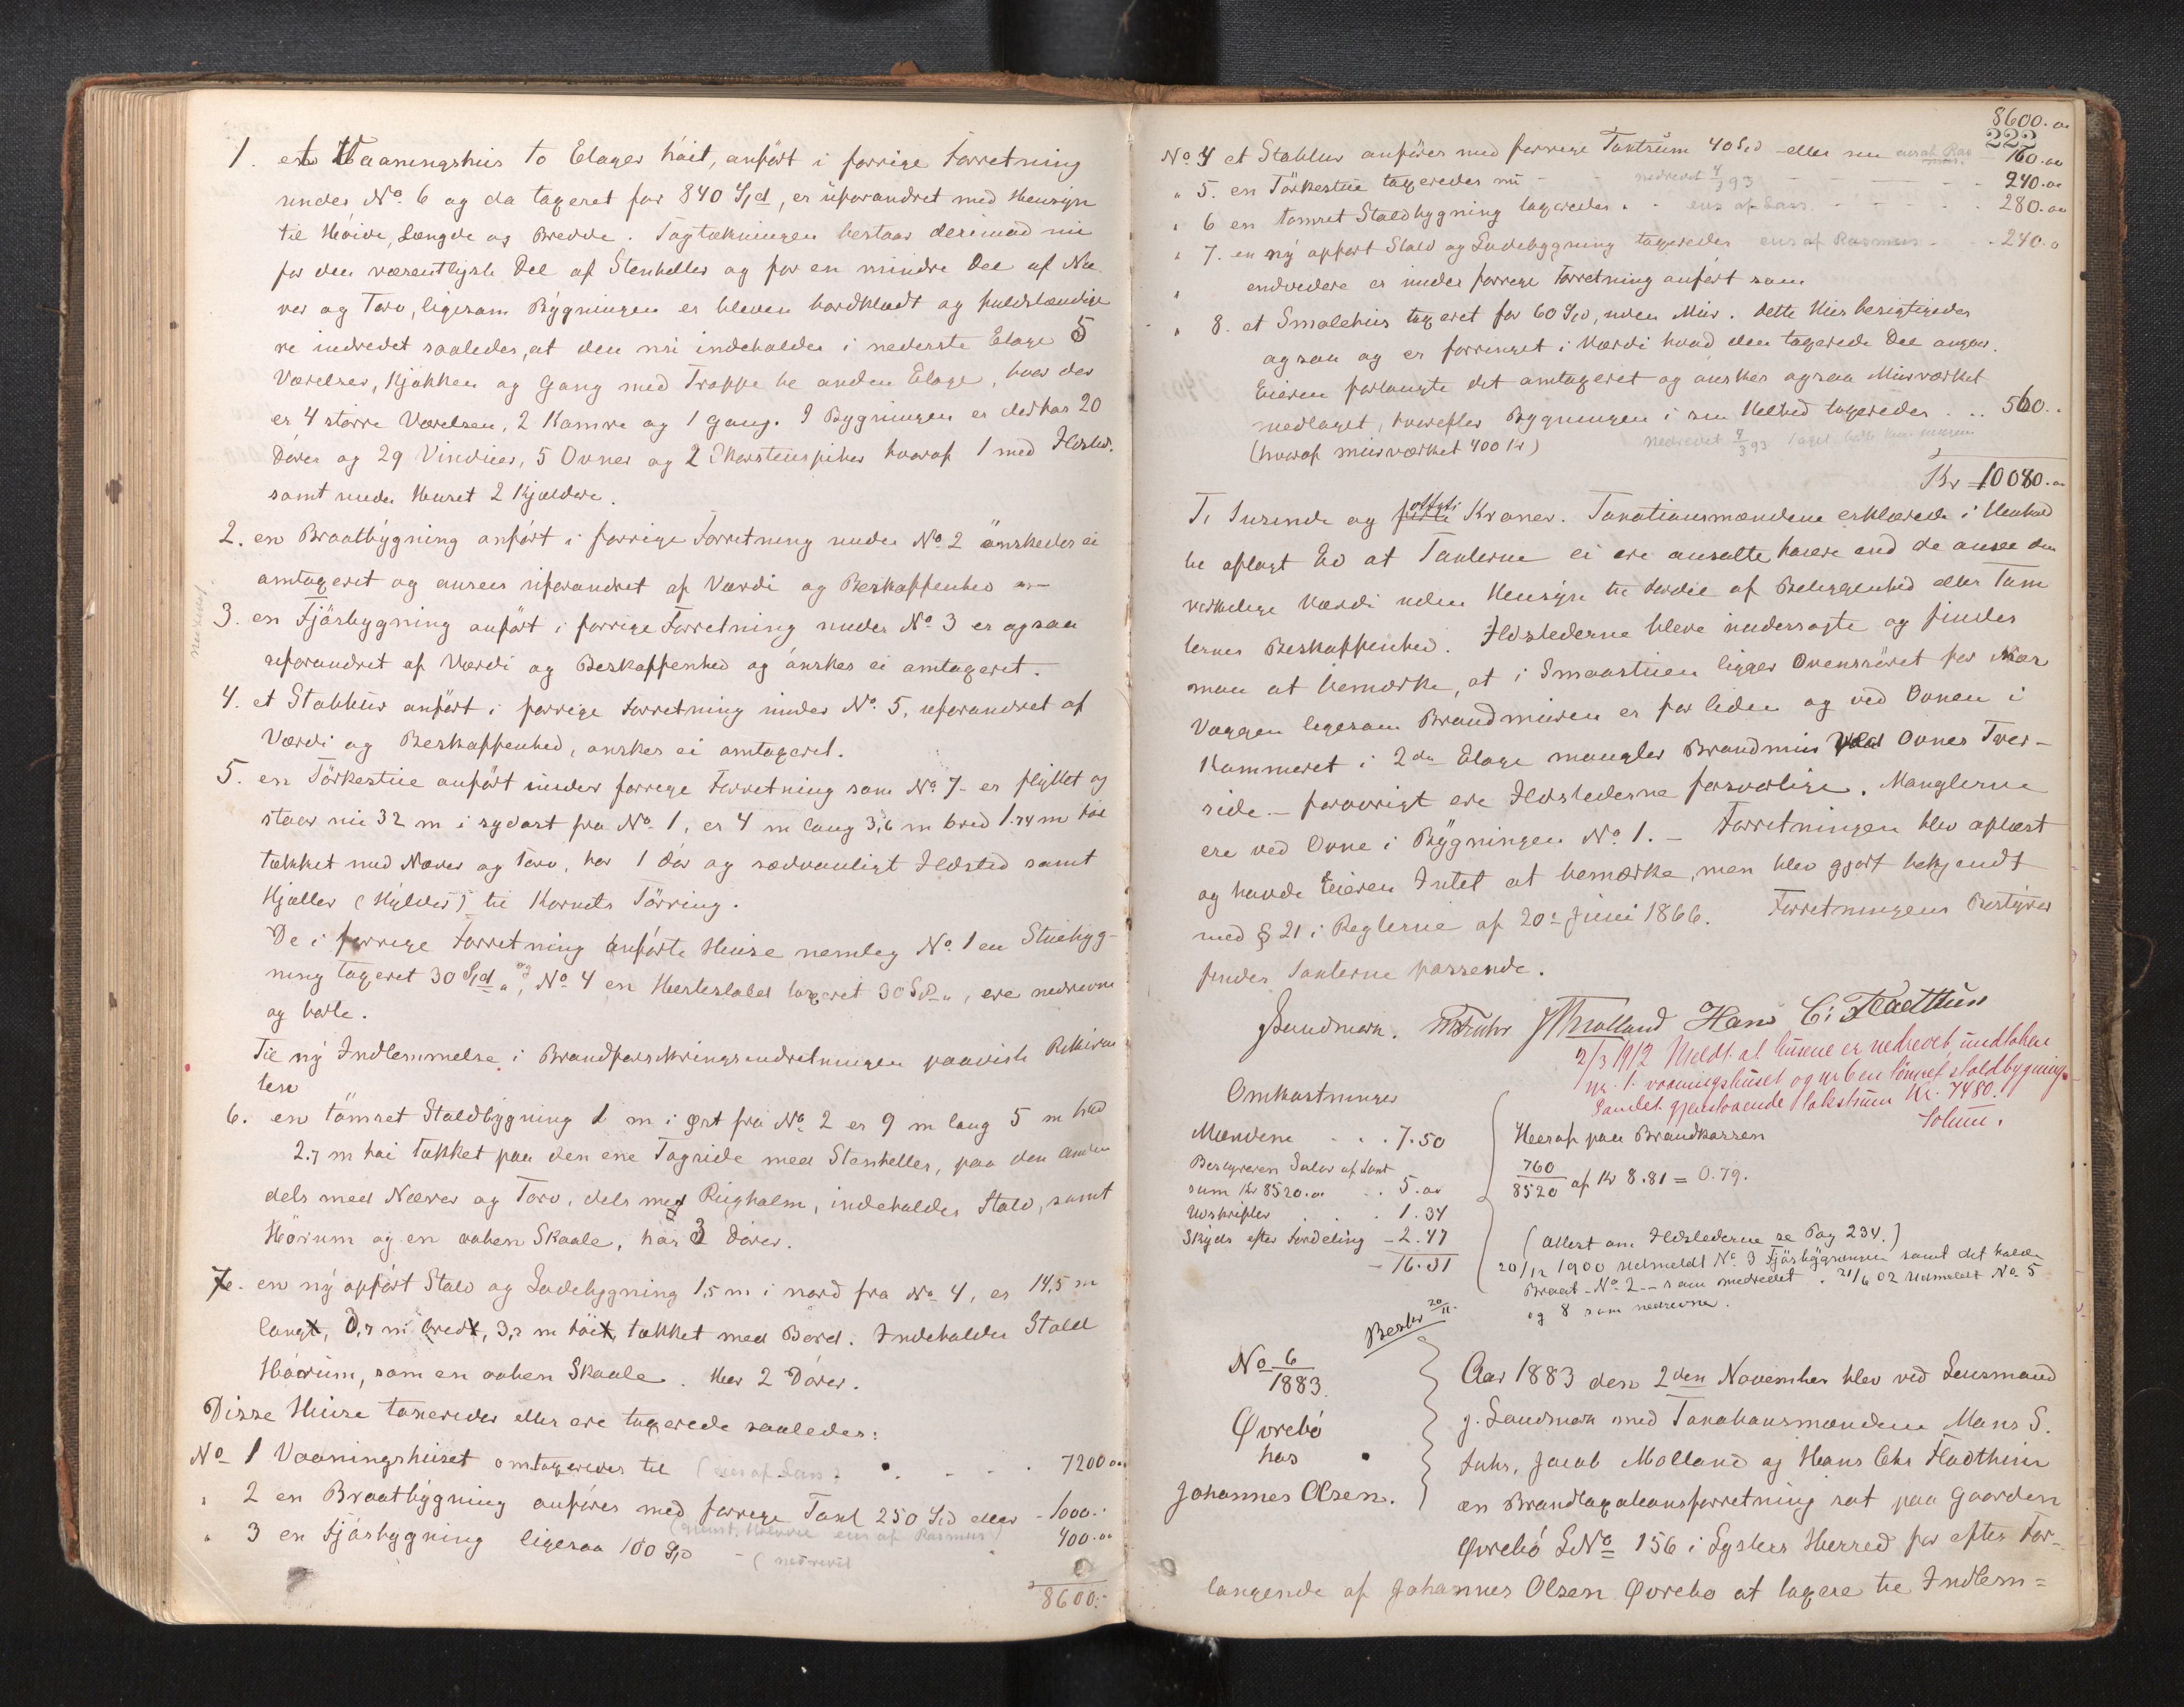 1. et Vaaningshus to Etager höit, anfört i forrige Forretning
under No. 6 og da taxeret for 840 Spd, er uforandret med Hensyn
til Höide, Længde og Bredde. Tagtækningen bestaar derimod nu
for den væsentligste Del af Stenheller og for en mindre Del af Næ-
ver og Torv, ligesom Bygningen er bleven bordklædt og fuldstændige-
re indredet saaledes, at den nu indeholder i nederste Etage 5
Værelser, Kjökken og Gang med Trappe til anden Etage, hvor der
er 4 större Værelser, 2 Kamre og 1 Gang. I Bygningen er derhos 20
Dörer og 29 Vinduer, 5 Ovner og 2 Skorstenspiber hvoraf 1 med Ildsted.
samt under Huset 2 Kjældere.
2. en Braatbygning anfört i forrige Forretning under No. 2 önskedes ei
omtaxeret og ansees uforandret af Værdi og Beskaffenhed
3. en Fjösbygning anfört i forrige Forretning under No. 3 er ogsaa
uforandret af Værdi og Beskaffenhed og önskes ei omtaxeret.
4. et Stabbur anfört i forrige Forretning under No. 5, uforandret af
Værdi og Beskaffenhed, önskes ei omtaxeret.
5. en Törkestue anfört under forrige Forretning som No. 7 er flyttet og
staar nu 32 m i sydost fra No. 1, er 4 m lang 3,6 m bred 1.74 m höi
tækket med Næver og Torv, har 1 dör og sædvanligt Ildsted samt
Hjæller (Hylder) til Kornets Törring.
De i forrige Forretning anförte Huse nemlig No. 1 en Stuebyg-
ning taxeret 30 Spd og No 4 en Hestestald taxeret 30 Spd, ere nedrevne
og borte.
Til ny Indlemmelse i Brandforsikringsindretningen paaviste Rekviren
ten
6. en tömret Staldbygning 1 m i Öst fra No. 2 er 9 m lang 5 m bred
2.7 m höi tækket paa den ene Tagside med Stenheller, paa den anden
dels med Næver og Torv, dels med Rughalm, indeholder Stald, samt
Hörum og en aaben Skaale, har 3 Dörer.
7. en ny opfört Stald og Ladebygning 1,5 m i nord fra No. 4, er 14,5 m
lang, m bred, 3,2 m höi, tækket med Bord. Indeholder Stald
Hörum, som en aaben Skaale. Har 2 Dörer.
Disse Huse taxeredes eller ere taxerede saaledes:
No 1 Vaaningshuset omtaxeredes til (eies af Lars) 7200.00
" 2 en Braatbygning anföres med forrige Taxt 250 Spd eller - 1000.-
eies af Rasmus)
" 3 en Fjösbygning ligesaa 100 Spd - (nedrevet 400.00
8600.-
8600.00
222
No. 4 et Stabbur anföres med forrige Taxtsum 40 Spd eller nu eies af Ras- mus. 160.00
" 5. en Törkestue taxeredes nu - nedrevet 4/3 93 240.00
" 6 en tömret Staldbygning taxeredes eies af Lars. 280.00
" 7. en ny opfört Stald og Ladebygning taxeredes eies af Rasmus - 240.0
" endvidere er under forrige Forretning anfört som
" 8. et Smalehus taxeret for 60 Spd, uden Mur. Dette Hus besigtigedes
ogsaa og er forringet i Værdi hvad den taxerede Del angaar.
Eieren forlangte det omtaxeret og önsker ogsaa Murværket
medtaget, hvorefter Bygningen i sin Helhed taxeredes . . 560.-
(hvoraf murværket 400 Kr) nedrevet 4/3 93
Kr 10080.00
Ti Tusinde og otteti Kroner. Taxationsmændene erklærede i Henhold
til aflagt Ed at Taxterne ei ere ansatte höiere end de ansee den
virkelige Værdi uden Hensyn til Fordele af Beliggenhed eller Tom
ternes Beskaffenhed. Ildstederne bleve undersögte og findes
man at bemærke, at i Smaastuen ligger Ovensröret for nær
Væggen ligesom Brandmuren er for liden og ved Ovnen i
Kammeret i 2den Etage mangler Brandmur ved Ovnes Tver-
side. - forövrigt ere Ildstederne forsvarlige. Manglerne
ere ved Ovne i Bygningen No. 1. - Forretningen blev oplæst
og havde Eieren Intet at bemærke, men blev gjort bekjendt
med § 21 i Reglerne af 20de Juni 1866. Forretningens Bestyrer
finder Taxterne passende.
J Sandmark. M Fuhr J Molland Hans C: Fladthun
2/3 1912 Meldt at husene er nedrevet undtaken
nr. 1. vaaningshuset og nr 6 en tömret staldbygning.
Samlet gjenstaaende takstsum Kr. 7480.
Solum.
Omkostninger
Mændene . . . 7.50
Bestyreren Salær af Taxt
sum Kr 8520.00 . . 5.00
Udskrifter . 1.34
Skyds efter Fordeling - 2.47
- 16.31
Heraf paa Brandkassen
760/8520 af Kr 8.81 = 0.79.
(Attest om Ildstederne se Pag 234.)
20/12 1900 Udmeldt No. 3 Fjösbygningen samt det halve
Braat- No. 2 - som nedrevet. 21/6 02 Udmeldt No. 5
og 8 som nedrevne.
Beskr 20/11.
No 6/1883.
Övrebö
hos
Johannes Olsen.
Aar 1883 den 2den November blev ved Lensmand
J. Sandmark med Taxationsmændene Mons S.
Fuhr, Jacob Molland og Hans Chr Fladthun
en Brandtaxationsforretning sat paa Gaarden
Övrebö LNo 156 i Lysters Herred for efter For-
langende af Johannes Olsen Övrebö at taxere til Indlem=